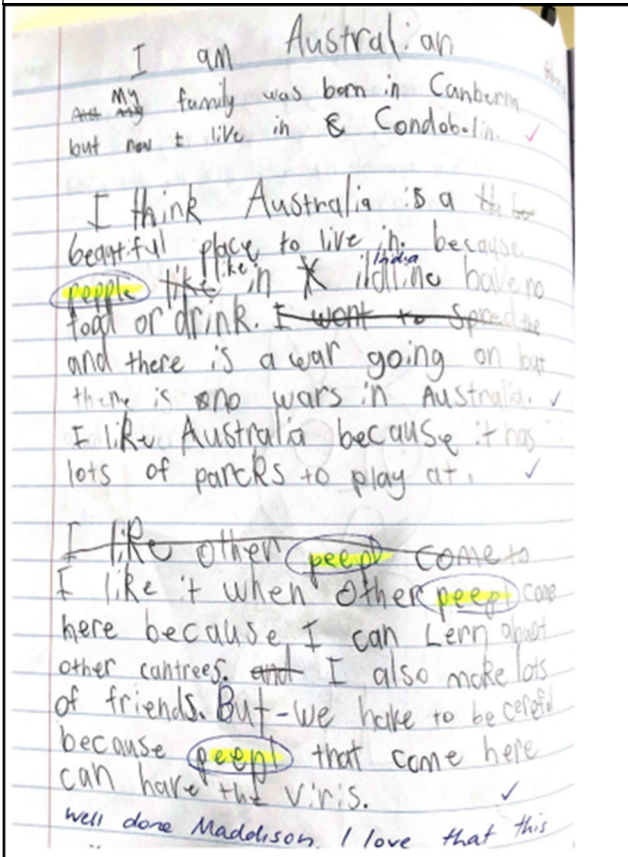 I am Australian
And My My family was born in Canberra
but now I live in C Condobolin.
I think Australia is a
beautiful place to live in. because
popple like like in India have no
food or drink. I wont to spred the
and there is a war going on but
there is no wars in Australia.
I like Australia because it has
lots of parcks to play at.
I like other peepl come to
I like it when other peepl come
here because I can Lern about
other cantrees. and I also make lots
of friends. But we have to be cerefil
because peepl that come here
can have the viris.
well done Maddison. I love that this